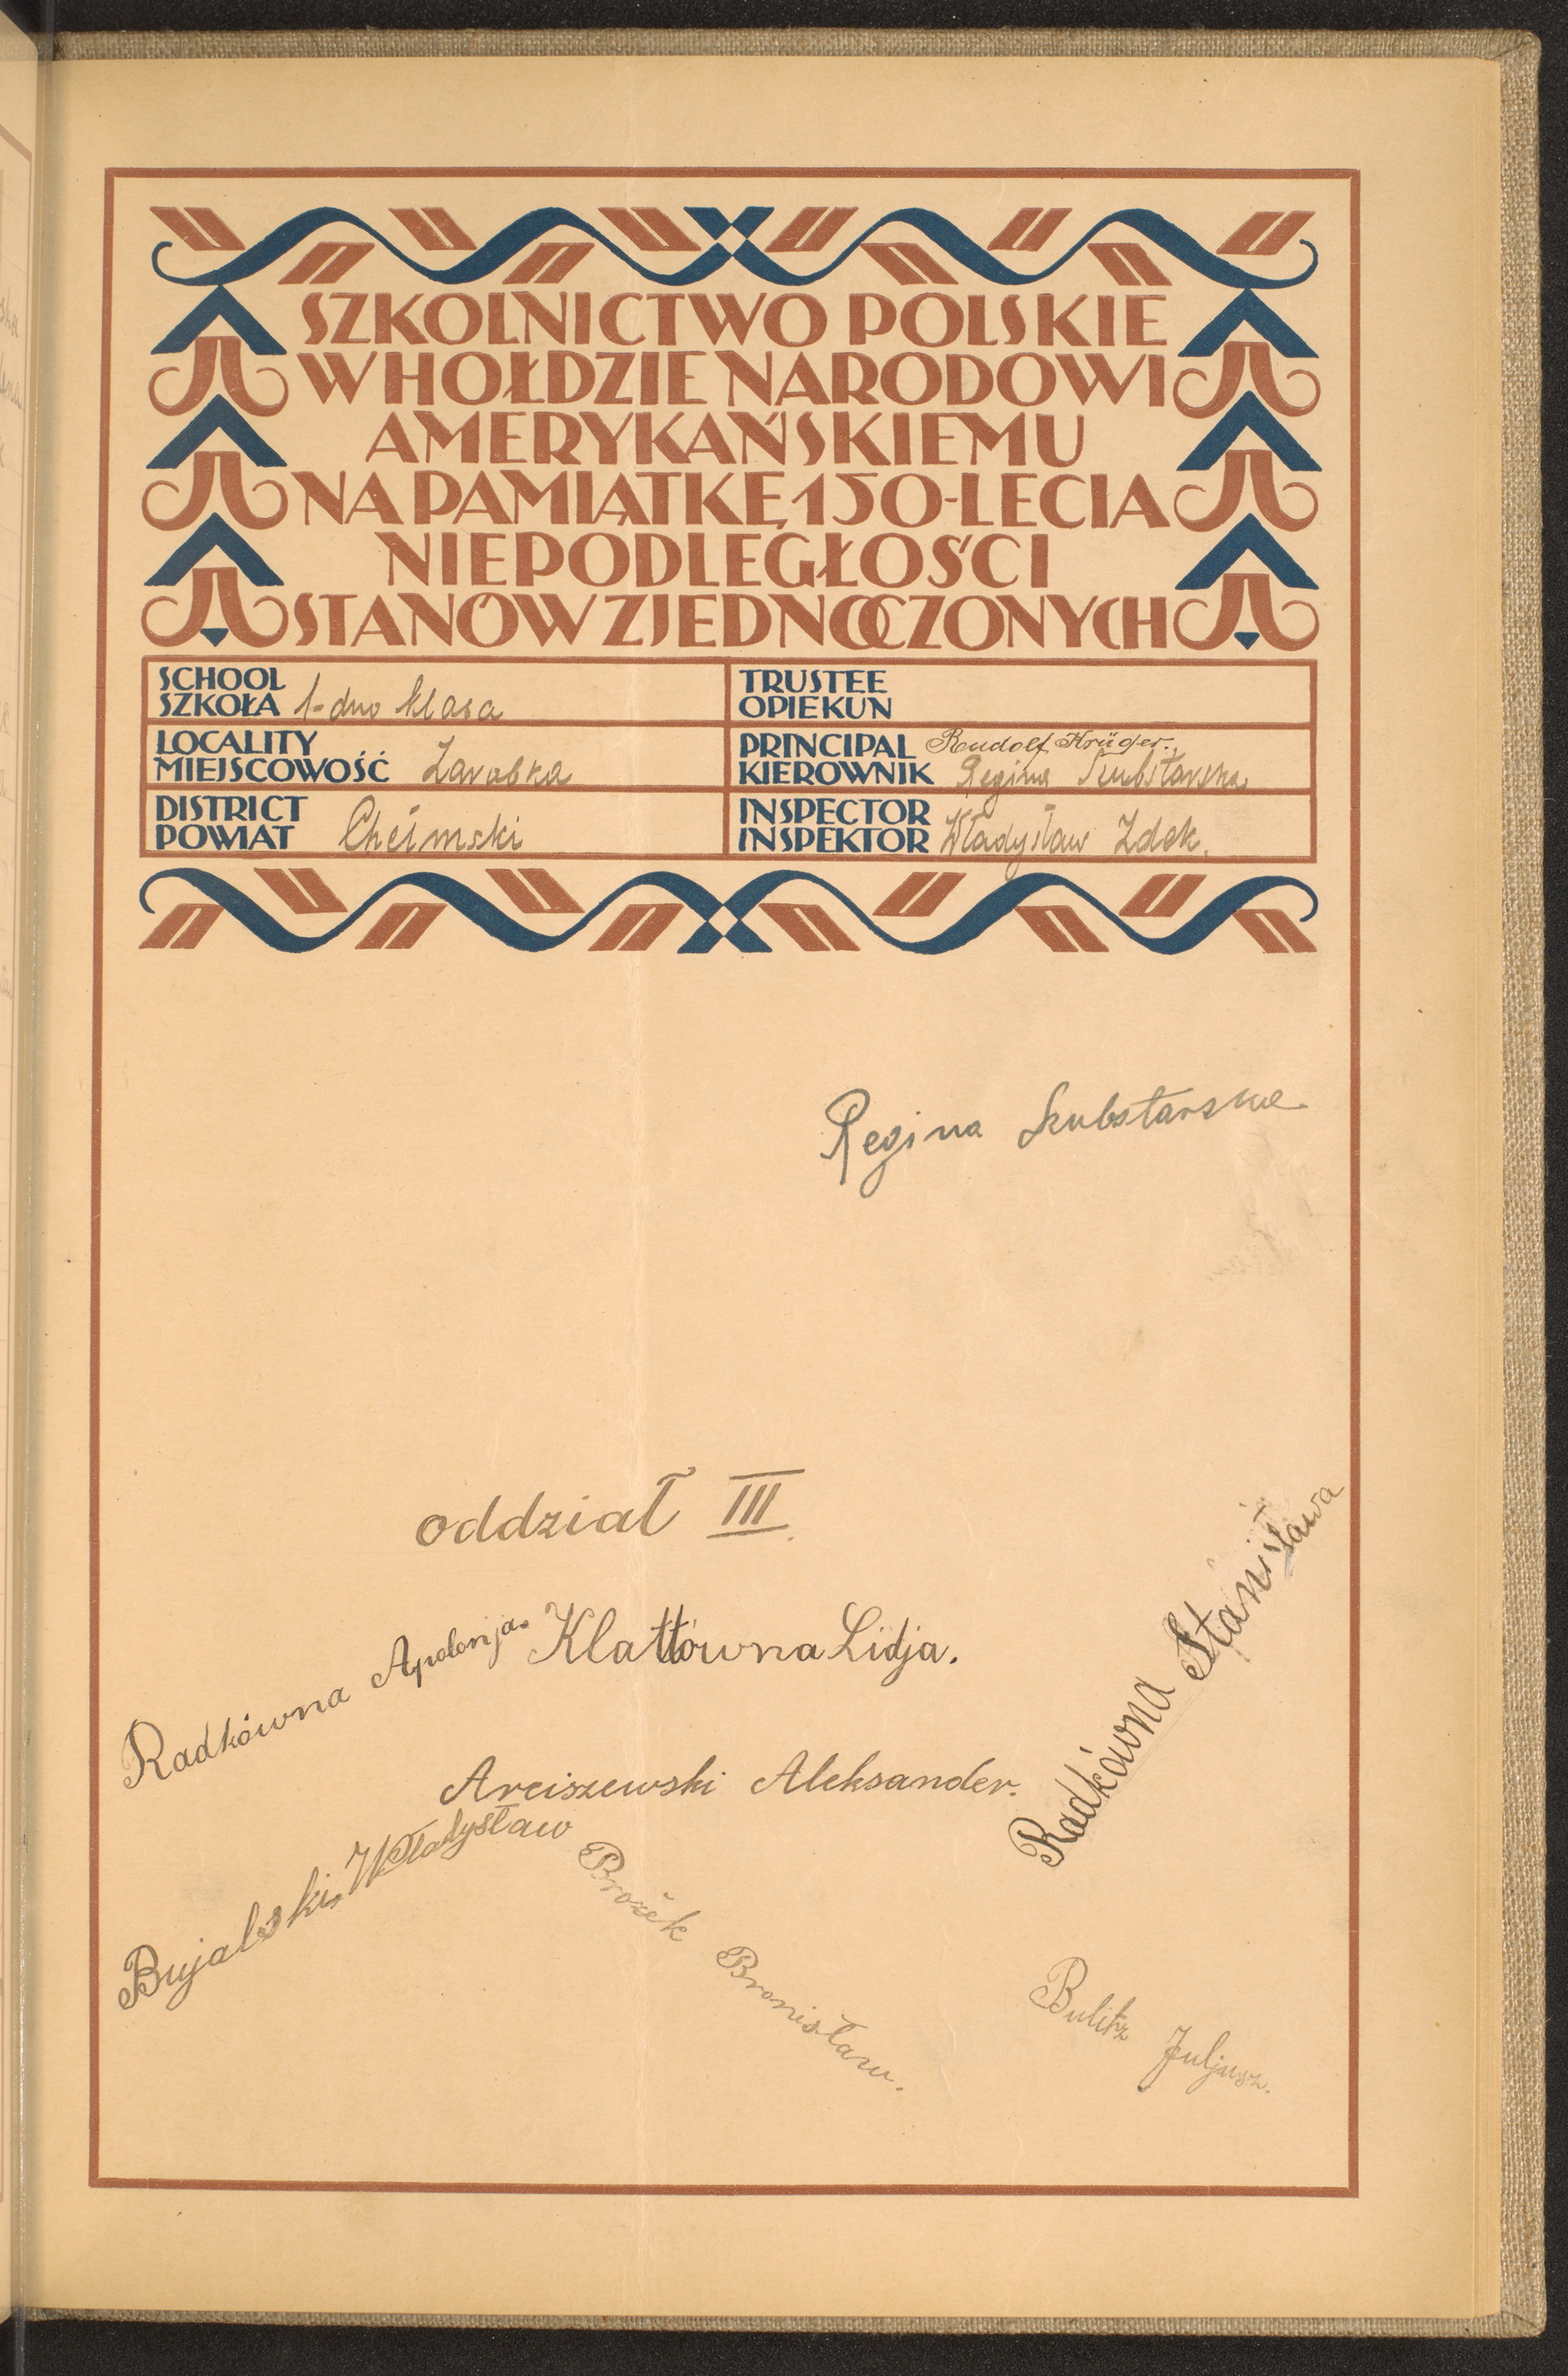 SZKOLNICTWO POLSKIE
W HOŁDZIE NARODOWI
AMERYKAŃSKIEMU
NA PAMIĄTKĘ 150-LECIA
NIEPODLEGŁOŚCI
STANÓW ZJEDNOCZONYCH
SCHOOL
SZKOŁA 1-dno klasa
TRUSTEE
OPIEKUN
LOCALITY
MIEJSCOWOŚĆ Zarobka
PRINCIPAL Rudolf Krüger.
KIEROWNIK Regina Szubstarska
DISTRICT
POWIAT Chełmski
INSPECTOR
INSPEKTOR Władysław Zdek.
Regina Szubstarska
oddział III
Radkówna Apolonja.
Klattówna Lidja.
Radkówna Stanisława
Arciszewski Aleksander.
Bujalski Władysław
Brożek Bronisław.
Bulitz Juljusz.